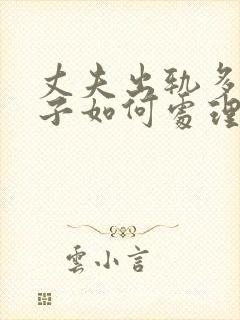 丈夫出轨多
子如何處理
雲小言